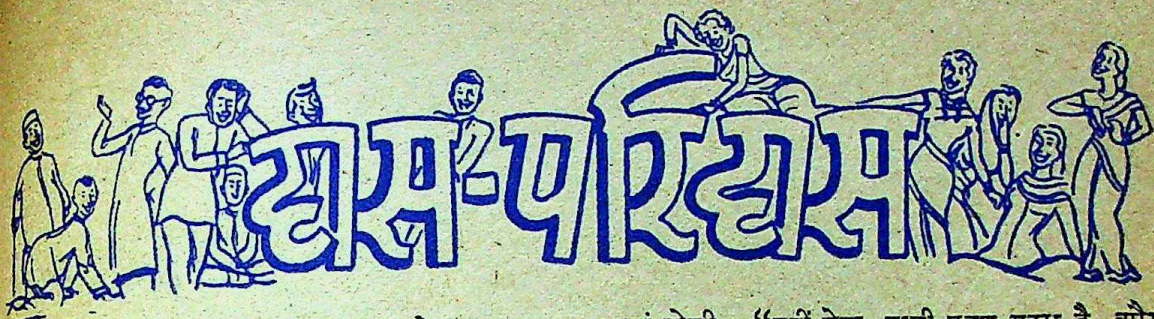 हास-परिहास